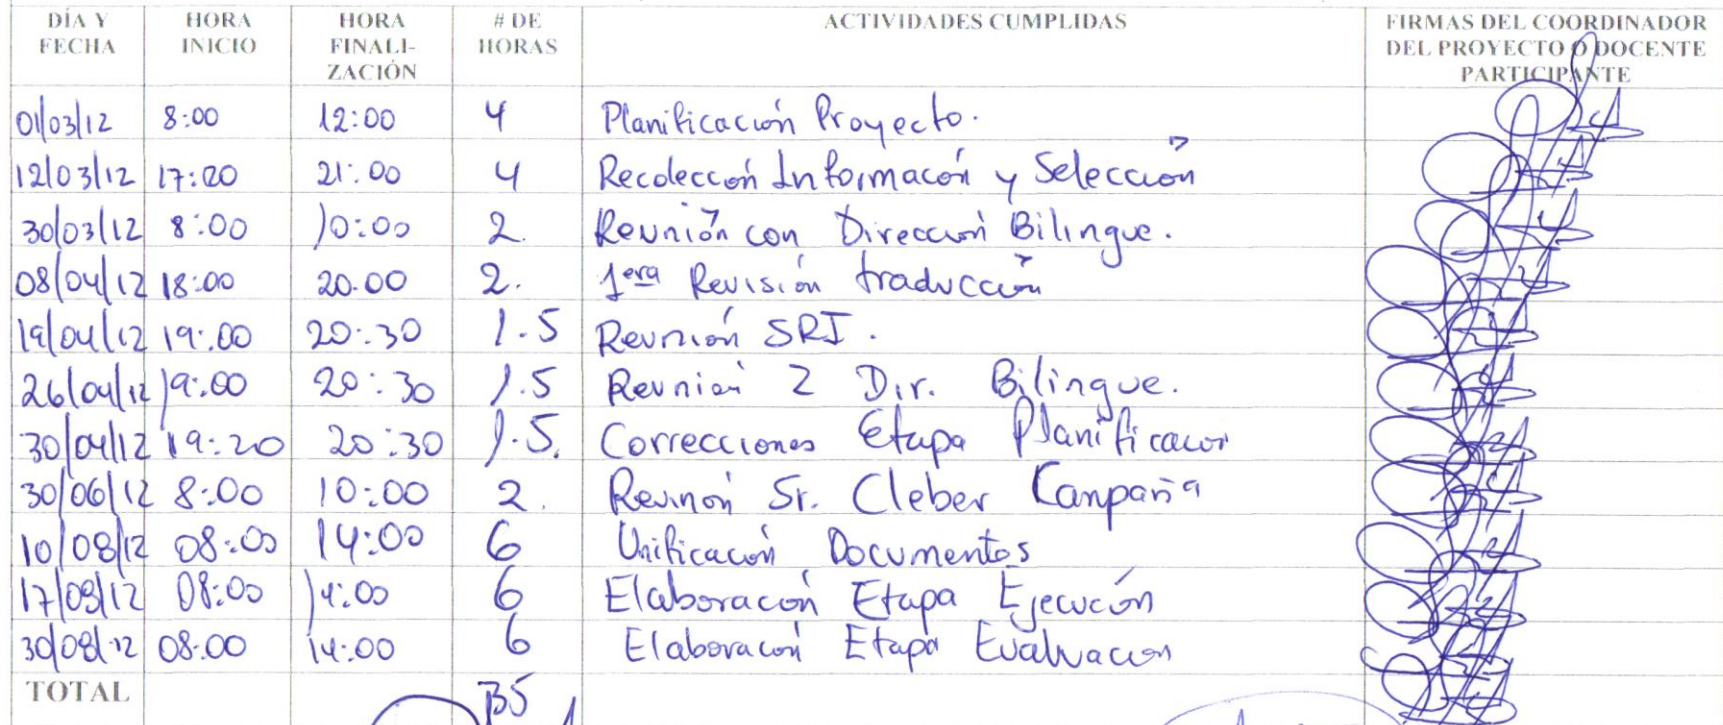 DÍA Y FECHA HORA INICIO HORA FINALI-ZACIÓN # DE HORAS ACTIVIDADES CUMPLIDAS FIRMAS DEL COORDINADOR DEL PROYECTO O DOCENTE PARTICIPANTE
01/03/12 8:00 12:00 4 Planificación Proyecto.
12/03/12 17:00 21:00 4 Recolección Información y Selección
30/03/12 8:00 10:00 2. Reunión con Dirección Bilingue.
08/04/12 18:00 20.00 2. 1era Revisión traducción
19/04/12 19:00 20:30 1.5 Reunión SRI.
26/04/12 19:00 20:30 1.5 Reunión 2 Dir. Bilingue.
30/04/12 19:20 20:30 1.5. Correcciones Etapa Planificacion
30/06/12 8:00 10:00 2. Reunón Sr. Cleber Campaña
10/08/12 08:00 14:00 6 Unificación Documentos
17/08/12 08:00 14:00 6 Elaboración Etapa Ejecución
30/08/12 08:00 14:00 6 Elaboración Etapa Evaluacion
TOTAL